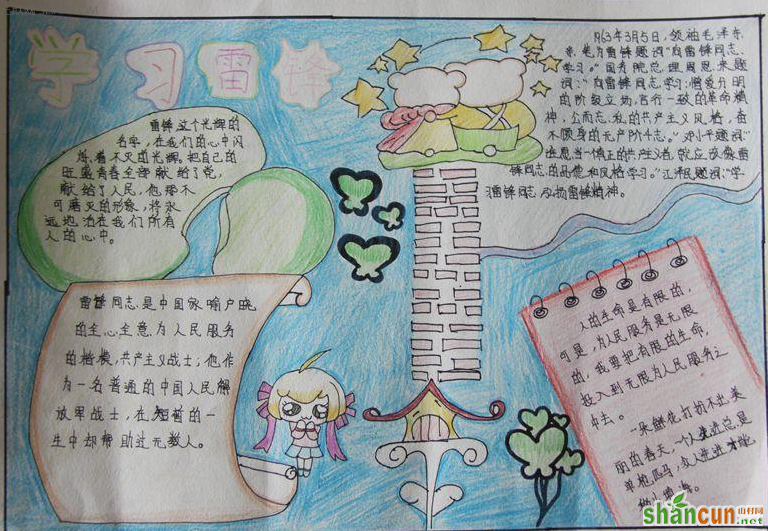 学习雷锋
雷锋这个光辉的
名字，在我们的心中闪
着不灭的光辉，把自己的
旺盛青春全部献给了党，
献给了人民，他那不
可磨灭的形象，将永
远地活在我们所有
人的心中。
1963年3月5日，领袖毛泽东
笔为雷锋题词"向雷锋同志
学习。"国务院总理周恩来题
词："向雷锋同志学习：憎爱分明
的阶级立场，言行一致的革命精
神，公而忘私的共产主义风格，奋
不顾身的无产阶斗志。"邓小平题词：
真正的共产主义者，就应该像雷
锋同志的品德和风格学习。"江泽民题词："学
习雷锋同志 弘扬雷锋精神。
雷锋同志是中国家喻户晓
的全心全意为人民服务
的楷模，共产主义战士；他作
为一名普通的中国人民解
放军战士，在短暂的一
生中却帮助过无数人。
人的生命是有限的，
可是，为人民服务是无限
的，我要把有限的生命，
投入到无限为人民服务之
中去。
一朵鲜花打扮不出美
丽的春天，一个人先进总是
单枪匹马，众人先进才能
shancun
山村网
.net